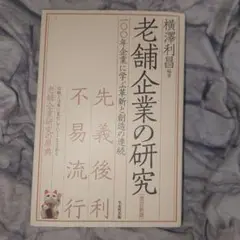 横澤利昌 編著
老舗企業の研究
一〇〇年企業に学ぶ革新と創造の連続
先義後利
不易流行
老舗企業研究の原典